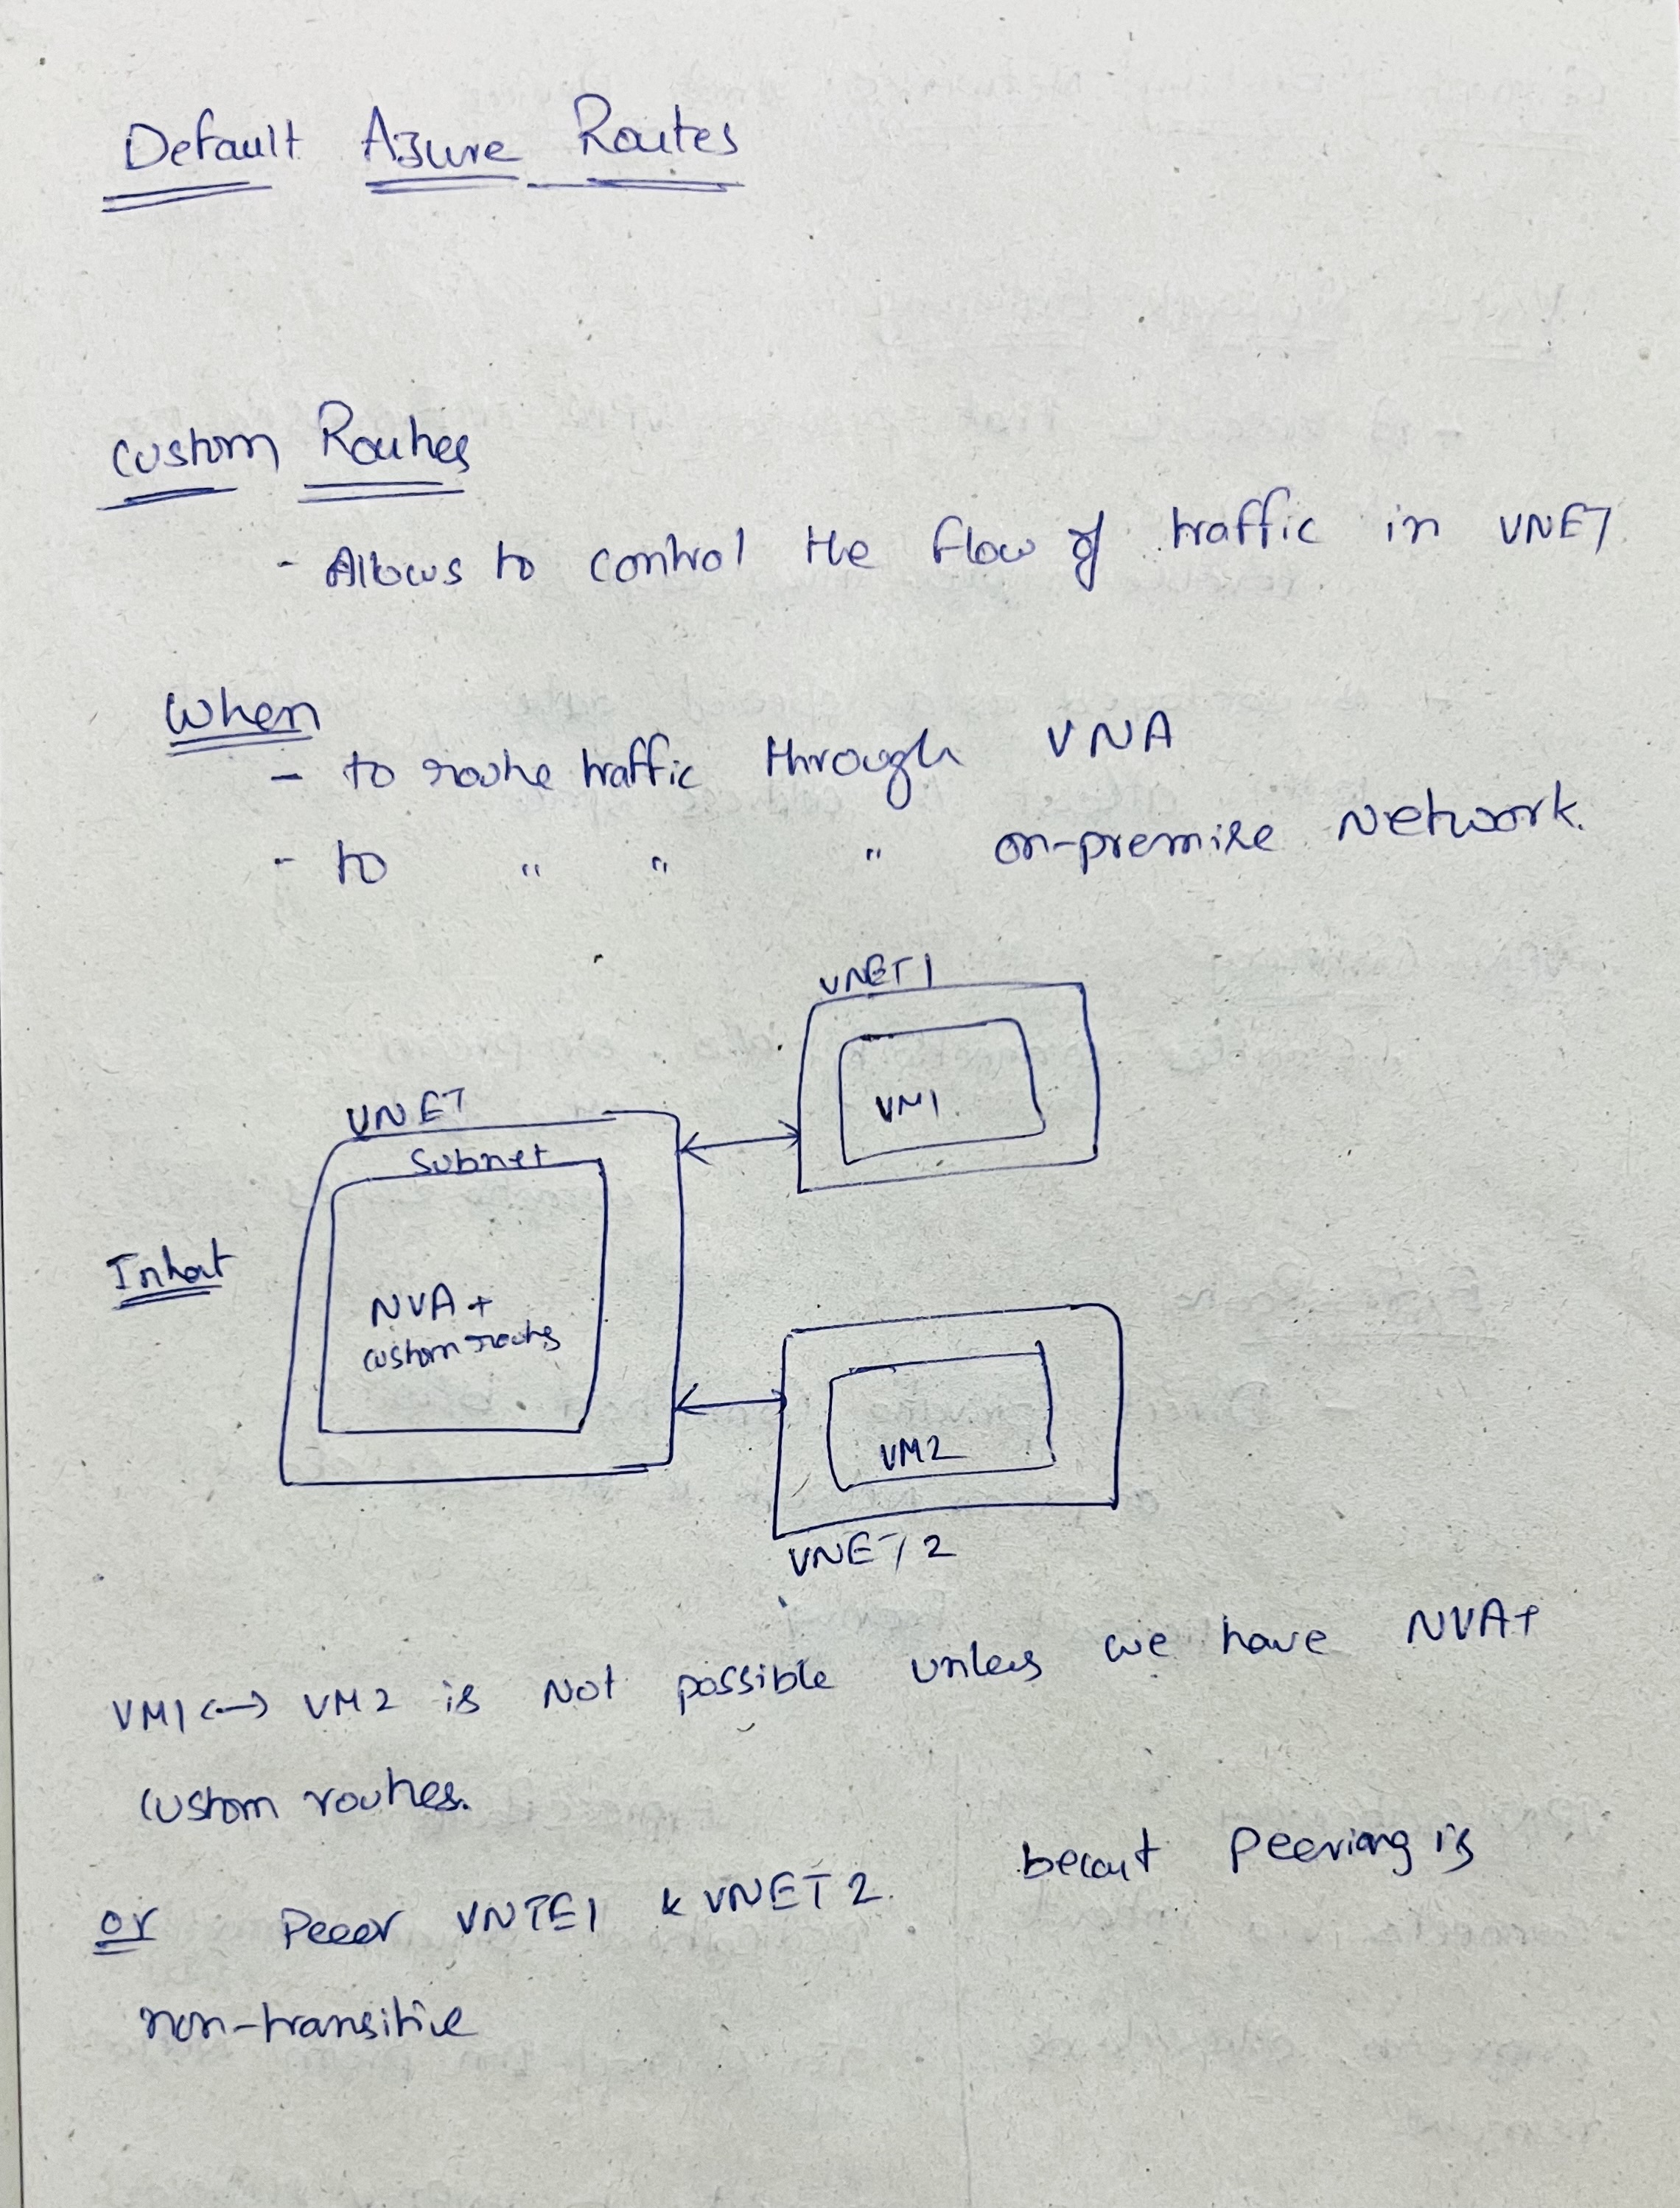 Default Azure Routes
Custom Routes
- Allows to control the flow of traffic in VNET
When
- to route traffic through VNA
- to " " " on-premise Network.
VNET1
VM1
VNET
Subnet
NVA +
custom routes
VM2
VNET 2
VM1 <-> VM2 is Not possible unless we have NVA+
Custom routes.
or Peeer VNTE1 & VNET2. becaut Peering is
non-transitive